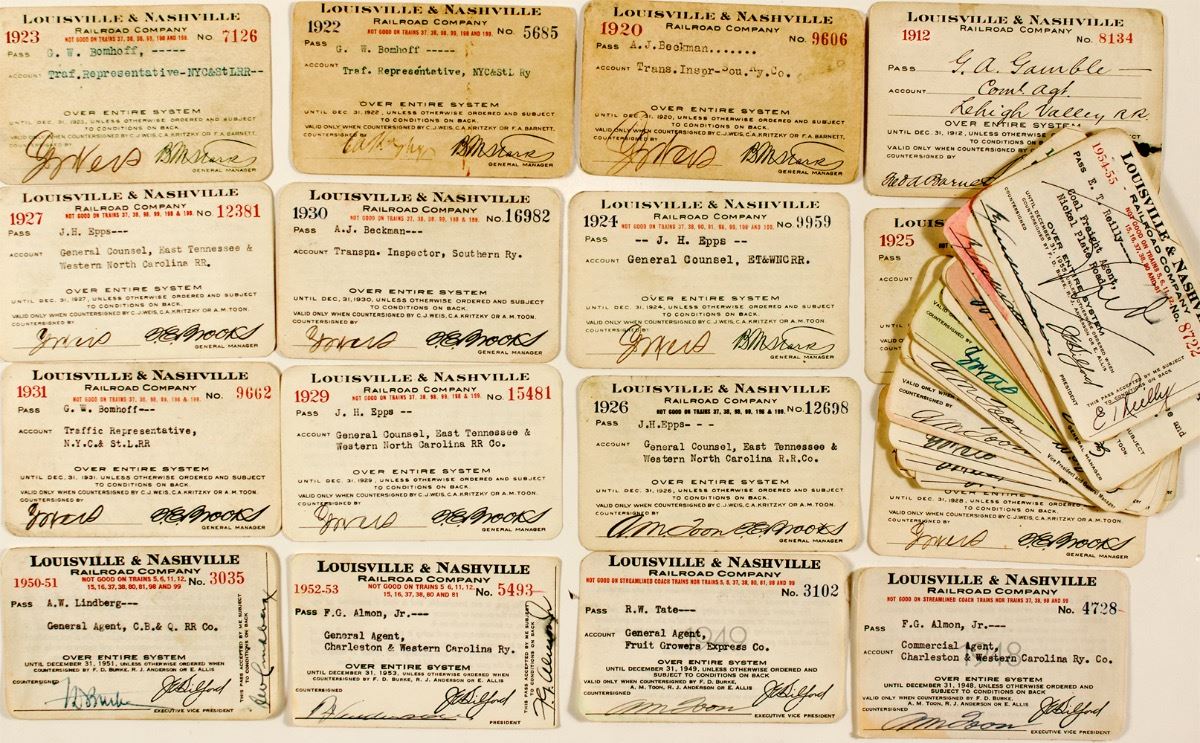 LOUISVILLE & NASHVILLE
RAILROAD COMPANY
1923 NOT GOOD ON TRAINS 37, 38, 98, 99, 198 AND 199. NO. 7126
PASS G. W. Bomhoff, -----
ACCOUNT Traf.Representative-NYC&StLRR--
OVER ENTIRE SYSTEM
UNTIL DEC. 31, 1923, UNLESS OTHERWISE ORDERED AND SUBJECT
TO CONDITIONS ON BACK.
VALID ONLY WHEN COUNTERSIGNED BY C.J.WEIS, C.A.KRITZKY OR F.A.BARNETT.
COUNTERSIGNED BY
GENERAL MANAGER
LOUISVILLE & NASHVILLE
RAILROAD COMPANY
1922 NOT GOOD ON TRAINS 37, 38, 98, 99, 198 AND 199. NO. 5685
PASS G. W. Bomhoff -----
ACCOUNT Traf. Representative, NYC&StL Ry
OVER ENTIRE SYSTEM
UNTIL DEC. 31, 1922, UNLESS OTHERWISE ORDERED AND SUBJECT
TO CONDITIONS ON BACK.
VALID ONLY WHEN COUNTERSIGNED BY C.J.WEIS, C.A.KRITZKY OR F.A.BARNETT.
COUNTERSIGNED BY
GENERAL MANAGER
LOUISVILLE & NASHVILLE
RAILROAD COMPANY
1920 NOT GOOD ON TRAINS 37, 38, 98, 99, 198 AND 199. NO. 9606
PASS A.J.Beckman.......
ACCOUNT Trans.Inspr-Sou.Ry.Co.
OVER ENTIRE SYSTEM
UNTIL DEC. 31, 1920, UNLESS OTHERWISE ORDERED AND SUBJECT
TO CONDITIONS ON BACK.
VALID ONLY WHEN COUNTERSIGNED BY C.J.WEIS, C.A.KRITZKY OR F.A.BARNETT.
COUNTERSIGNED BY
GENERAL MANAGER
LOUISVILLE & NASHVILLE
RAILROAD COMPANY
1912 NO. 8134
PASS G. A. Gamble
ACCOUNT Coml Agt
Lehigh Valley RR
OVER ENTIRE SYSTEM
UNTIL DEC. 31, 1912, UNLESS OTHERWISE ORDERED AND
TO CONDITIONS ON
VALID ONLY WHEN COUNTERSIGNED BY
COUNTERSIGNED BY
LOUISVILLE & NASHVILLE
RAILROAD COMPANY
1927 NOT GOOD ON TRAINS 37, 38, 98, 99, 198 & 199. NO. 12381
PASS J.H. Epps---
ACCOUNT General Counsel, East Tennessee &
Western North Carolina RR.
OVER ENTIRE SYSTEM
UNTIL DEC. 31, 1927, UNLESS OTHERWISE ORDERED AND SUBJECT
TO CONDITIONS ON BACK.
VALID ONLY WHEN COUNTERSIGNED BY C.J.WEIS, C.A.KRITZKY OR A.M.TOON.
COUNTERSIGNED BY
GENERAL MANAGER
LOUISVILLE & NASHVILLE
RAILROAD COMPANY
1930 NOT GOOD ON TRAINS 37, 38, 98, 99, 198 & 199. NO. 16982
PASS A.J. Beckman---
ACCOUNT Transpn. Inspector, Southern Ry.
OVER ENTIRE SYSTEM
UNTIL DEC. 31, 1930, UNLESS OTHERWISE ORDERED AND SUBJECT
TO CONDITIONS ON BACK.
VALID ONLY WHEN COUNTERSIGNED BY C.J.WEIS, C.A.KRITZKY OR A.M.TOON.
COUNTERSIGNED BY
GENERAL MANAGER
LOUISVILLE & NASHVILLE
RAILROAD COMPANY
1924 NO. 9959
PASS -- J. H. Epps --
ACCOUNT General Counsel, ET&WNCRR.
OVER ENTIRE SYSTEM
UNTIL DEC. 31, 1924, UNLESS OTHERWISE ORDERED AND SUBJECT
TO CONDITIONS ON BACK.
VALID ONLY WHEN COUNTERSIGNED BY C.J.WEIS, C.A.KRITZKY OR A.M.TOON.
COUNTERSIGNED BY
GENERAL MANAGER
1925
PASS
ACCOUNT
LOUISVILLE & NASHVILLE
RAILROAD COMPANY
1931 NOT GOOD ON TRAINS 37, 38, 98, 99, 198 & 199. NO. 9662
PASS G. W. Bomhoff---
ACCOUNT Traffic Representative,
N.Y.C.& St.LRR
OVER ENTIRE SYSTEM
UNTIL DEC. 31, 1931, UNLESS OTHERWISE ORDERED AND SUBJECT
TO CONDITIONS ON BACK.
VALID ONLY WHEN COUNTERSIGNED BY C.J.WEIS, C.A.KRITZKY OR A.M.TOON.
COUNTERSIGNED BY
GENERAL MANAGER
LOUISVILLE & NASHVILLE
RAILROAD COMPANY
1929 NOT GOOD ON TRAINS 37, 38, 98, 99, 198 & 199. NO. 15481
PASS J. H. Epps --
ACCOUNT General Counsel, East Tennessee &
Western North Carolina RR Co.
OVER ENTIRE SYSTEM
UNTIL DEC. 31, 1929, UNLESS OTHERWISE ORDERED AND SUBJECT
TO CONDITIONS ON BACK.
VALID ONLY WHEN COUNTERSIGNED BY C.J.WEIS, C.A.KRITZKY OR A.M.TOON.
COUNTERSIGNED BY
GENERAL MANAGER
LOUISVILLE & NASHVILLE
RAILROAD COMPANY
1926 NOT GOOD ON TRAINS 37, 38, 98, 99, 198 & 199. NO. 12698
PASS J.H.Epps- - -
ACCOUNT General Counsel, East Tennessee &
Western North Carolina R.R.Co.
OVER ENTIRE SYSTEM
UNTIL DEC. 31, 1926, UNLESS OTHERWISE ORDERED AND SUBJECT
TO CONDITIONS ON BACK.
VALID ONLY WHEN COUNTERSIGNED BY C.J.WEIS, C.A.KRITZKY OR A.M.TOON.
COUNTERSIGNED BY
A M Toon
GENERAL MANAGER
LOUISVILLE & NASHVILLE
RAILROAD COMPANY
1954-55
PASS E. T. Reilly
Coal Freight Agent,
Nickel Plate Road
OVER ENTIRE SYSTEM
PRESIDENT
THIS PASS ACCEPTED BY ME SUBJECT
TO CONDITIONS ON BACK.
E T Reilly
VALID ONLY WHEN
COUNTERSIGNED BY
OVER ENTIRE SYSTEM
UNTIL DEC. 31, 1928, UNLESS OTHERWISE ORDERED AND SUBJECT
TO CONDITIONS ON BACK.
VALID ONLY WHEN COUNTERSIGNED BY C.J.WEIS, C.A.KRITZKY OR A.M.TOON.
COUNTERSIGNED BY
GENERAL MANAGER
LOUISVILLE & NASHVILLE
RAILROAD COMPANY
1950-51 NOT GOOD ON TRAINS 5, 6, 11, 12, NO. 3035
15, 16, 37, 38, 80, 81, 98 AND 99
PASS A.W. Lindberg---
General Agent, C.B.& Q. RR Co.
OVER ENTIRE SYSTEM
UNTIL DECEMBER 31, 1951, UNLESS OTHERWISE ORDERED WHEN
COUNTERSIGNED BY F. D. BURKE, R. J. ANDERSON OR E. ALLIS
COUNTERSIGNED
EXECUTIVE VICE PRESIDENT
THIS PASS ACCEPTED BY ME SUBJECT
TO CONDITIONS ON BACK
LOUISVILLE & NASHVILLE
RAILROAD COMPANY
1952-53 NOT GOOD ON TRAINS 5, 6, 11, 12, No. 5493
15, 16, 37, 38, 80 AND 81
PASS F.G. Almon, Jr.---
General Agent,
Charleston & Western Carolina Ry.
OVER ENTIRE SYSTEM
UNTIL DECEMBER 31, 1953, UNLESS OTHERWISE ORDERED WHEN
COUNTERSIGNED BY F. D. BURKE, R. J. ANDERSON OR E. ALLIS
COUNTERSIGNED
PRESIDENT
THIS PASS ACCEPTED BY ME SUBJECT
TO CONDITIONS ON BACK
LOUISVILLE & NASHVILLE
RAILROAD COMPANY
NOT GOOD ON STREAMLINED COACH TRAINS NOR TRAINS 5, 6, 37, 38, 80, 81, 98 AND 99
No. 3102
PASS R.W. Tate---
1949
ACCOUNT General Agent,
Fruit Growers Express Co.
OVER ENTIRE SYSTEM
UNTIL DECEMBER 31, 1949, UNLESS OTHERWISE ORDERED AND
SUBJECT TO CONDITIONS ON BACK
VALID WHEN COUNTERSIGNED BY F. D. BURKE,
A. M. TOON, R. J. ANDERSON OR E. ALLIS
COUNTERSIGNED
A M Toon
EXECUTIVE VICE PRESIDENT
LOUISVILLE & NASHVILLE
RAILROAD COMPANY
NOT GOOD ON STREAMLINED COACH TRAINS NOR TRAINS 37, 38, 98 AND 99
No. 4728
PASS F.G. Almon, Jr.---
1948
ACCOUNT Commercial Agent,
Charleston & Western Carolina Ry. Co.
OVER ENTIRE SYSTEM
UNTIL DECEMBER 31, 1948, UNLESS OTHERWISE ORDERED AND
SUBJECT TO CONDITIONS ON BACK
VALID WHEN COUNTERSIGNED BY F. D. BURKE,
A. M. TOON, R. J. ANDERSON OR E. ALLIS
COUNTERSIGNED
A M Toon
EXECUTIVE VICE PRESIDENT